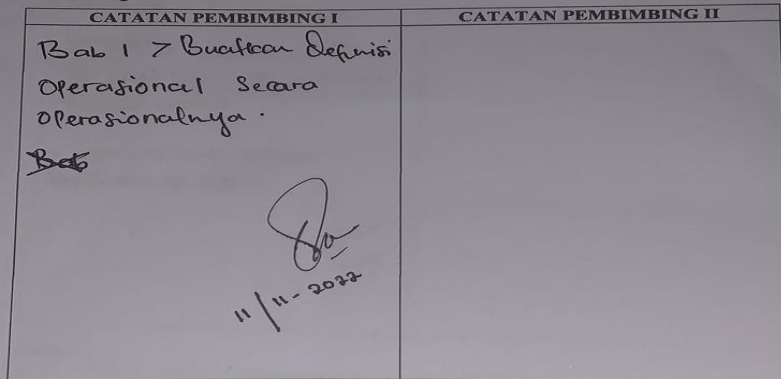 CATATAN PEMBIMBING I
CATATAN PEMBIMBING II
Bab 1 > Buatkan Definisi
Operasional Secara
Operasionalnya.
Bab
11/11-2022